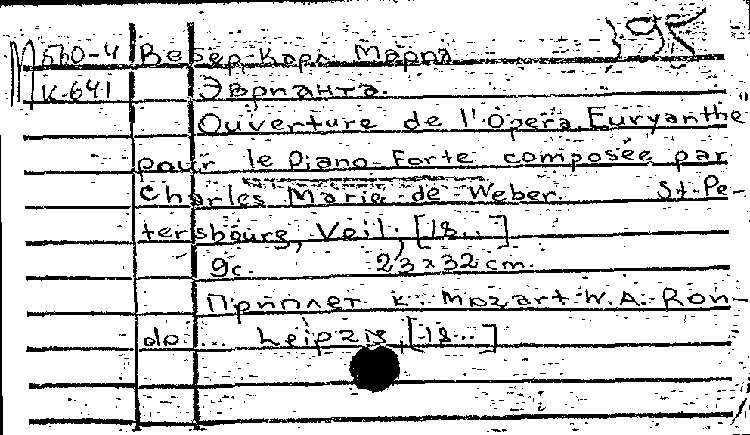 М560-4 Вебер, Карл Мария
К-641 Эврианта.
Ouverture de l'Opera „Euryanthe"
pour le Piano-Forte composée par
Charles Marie de Weber. St. Pe-
tersbourg, Veil, [18..]
9с. 23x32 cm.
Приплет к: Mozart W.A. Ron-
do... Leipzig, [18...]